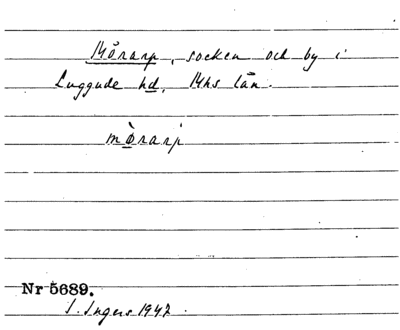 Mörarp, socken och by i
Luggude hd, Mhs län.
mò̱rarp
Nr 5689.
I. Ingers 1942.